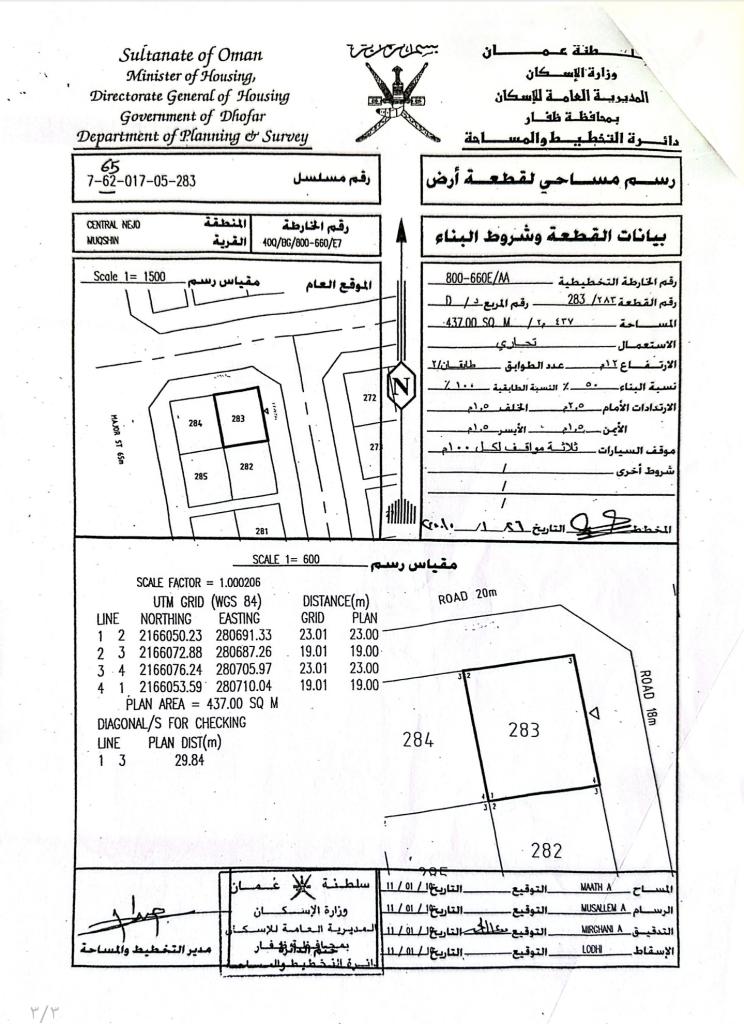 Sultanate of Oman
Minister of Housing,
Directorate General of Housing
Government of Dhofar
Department of Planning & Survey
سلطنة عمان
وزارة الإسكان
المديرية العامة للإسكان
بمحافظة ظفار
دائرة التخطيط والمساحة
65
7-62-017-05-283
رقم مسلسل
رسم مساحي لقطعة أرض
CENTRAL NEJD
المنطقة
MUQSHIN
القرية
رقم الخارطة
40Q/BG/800-660/E7
بيانات القطعة وشروط البناء
Scale 1= 1500
مقياس رسم
الموقع العام
MAJOR ST 65m
284
283
285
282
281
272
N
رقم الخارطة التخطيطية 800-660E/AA
رقم القطعة ٢٨٣/ 283 رقم المربع د/ D
المساحة ٤٣٧ م٢ / 437.00 SQ M
الاستعمال تجاري
الارتفاع ١٢م عدد الطوابق طابقان/٢
نسبة البناء ٥٠ ٪ النسبة الطابقية ١٠٠ ٪
الارتدادات الأمام ٢٫٥م الخلف ١٫٥م
الأيمن ١٫٥م الأيسر ١٫٥م
موقف السيارات ثلاثة مواقف لكل ١٠٠م
شروط أخرى /
/
/
المخطط التاريخ ٢٦ / ١ / ٢٠١٠
SCALE 1= 600
مقياس رسم
SCALE FACTOR = 1.000206
UTM GRID (WGS 84) DISTANCE(m)
LINE NORTHING EASTING GRID PLAN
1 2 2166050.23 280691.33 23.01 23.00
2 3 2166072.88 280687.26 19.01 19.00
3 4 2166076.24 280705.97 23.01 23.00
4 1 2166053.59 280710.04 19.01 19.00
PLAN AREA = 437.00 SQ M
DIAGONAL/S FOR CHECKING
LINE PLAN DIST(m)
1 3 29.84
ROAD 20m
ROAD 18m
3 2
3
284
283
4 1
3 2
4
282
سلطنة عُمان
وزارة الإسكان
المديرية العامة للإسكان
بمحافظة ظفار
ختم الدائرة
دائرة التخطيط والمساحة
مدير التخطيط والمساحة
المساح MAATH A التوقيع التاريخ 11 / 01 / 10
الرسام MUSALLEM A التوقيع التاريخ 11 / 01 / 10
التدقيق MIRCHANI A التوقيع التاريخ 11 / 01 / 10
الإسقاط LODHI التوقيع التاريخ 11 / 01 / 10
٣/٣